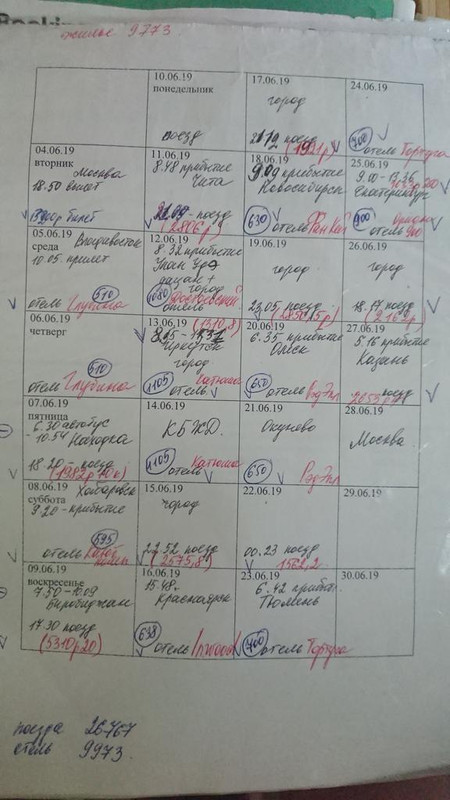 отелье 9773
10.06.19
понедельник
поезд
17.06.19
город
21.19 поезд
(1921р)
24.06.19
700
отель Тортуга
04.06.19
вторник
Москва
18.50 вылет
билет
11.06.19
8.48 прибытие
Чита
поезд
(2806р)
18.06.19
9.09 прибытие
Новосибирск
630 отель
25.06.19
Екатеринбург
900 отель
05.06.19
среда
Владивосток
10.05 прилет
510
отель Глубина
12.06.19
8.32 прибытие
Улан Удэ
дацан +
город
отель
19.06.19
город
23.05 поезд
26.06.19
город
поезд
06.06.19
четверг
510
отель Глубина
13.06.19
Иркутск
город
1105 отель Катюша
20.06.19
6.35 прибытие
Омск
650 отель РэдЭпл
27.06.19
5.16 прибытие
Казань
поезд
07.06.19
пятница
6.30 автобус
- 10.54 Находка
18.20 - поезд
14.06.19
КБЖД
1105 отель Катюша
21.06.19
Окунево
650 РэдЭпл
28.06.19
Москва
08.06.19
суббота
Хабаровск
9.20 - прибытие
595
отель
15.06.19
город
22.52 поезд
22.06.19
00.23 поезд
29.06.19
09.06.19
воскресенье
7.50 - 10.09
Биробиджан
17.30 поезд
(5310р20)
16.06.19
15.48
Красноярск
638 отель
23.06.19
6.42 прибыт.
Тюмень
700 отель Тортуга
30.06.19
поезда 26767
отель 9973